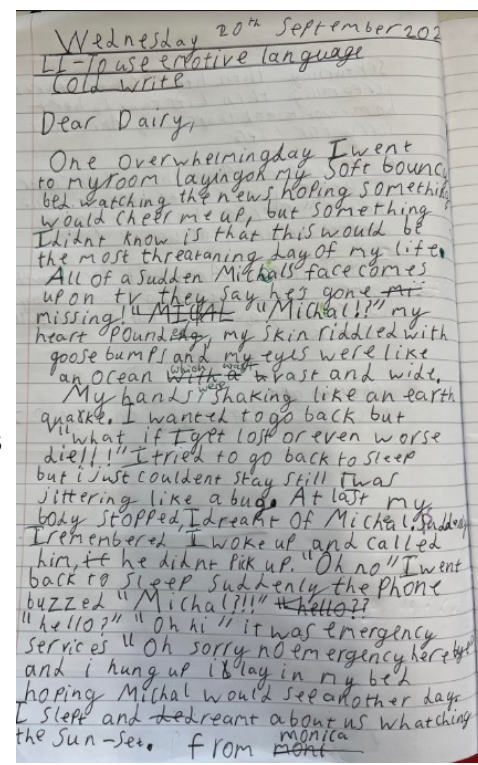 Wednesday 20th September 202
LI-To use emotive language
Cold write
Dear Dairy,
One overwhelming day I went
to my room laying on my soft bounc
bed watching the news hoping somethi
would cheer me up, but something
I didnt know is that this would be
the most threataning day of my life.
All of a sudden Michals face comes
up on tv they say he's gone
missing! "MICAL "Michal!?" my
heart pounding, my skin riddled with
goose bumps and my eyes were like
an ocean which was vast and wide.
My hands were shaking like an earth
quake. I wanted to go back but
"what if I get lost or even worse
die!!!" I tried to go back to sleep
but i just couldent stay still I was
jittering like a bug. At last my
body stopped, I dreamt of Michal. Suddenly
I remembered I woke up and called
him, it he didnt pick up. "Oh no" I went
back to sleep suddenly the phone
buzzed "Michal?!!" "hello??
"hello?" "Oh hi" it was emergency
services "Oh sorry no emergency here bye"
and i hung up i lay in my bed
hoping Michal would see another day.
I slept and dreamt about us whatching
the sun-set. from monica